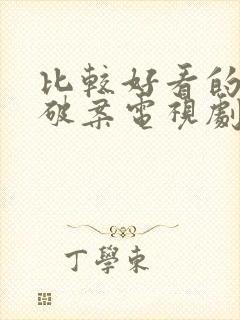 比較好看的
破案電視劇
丁學東